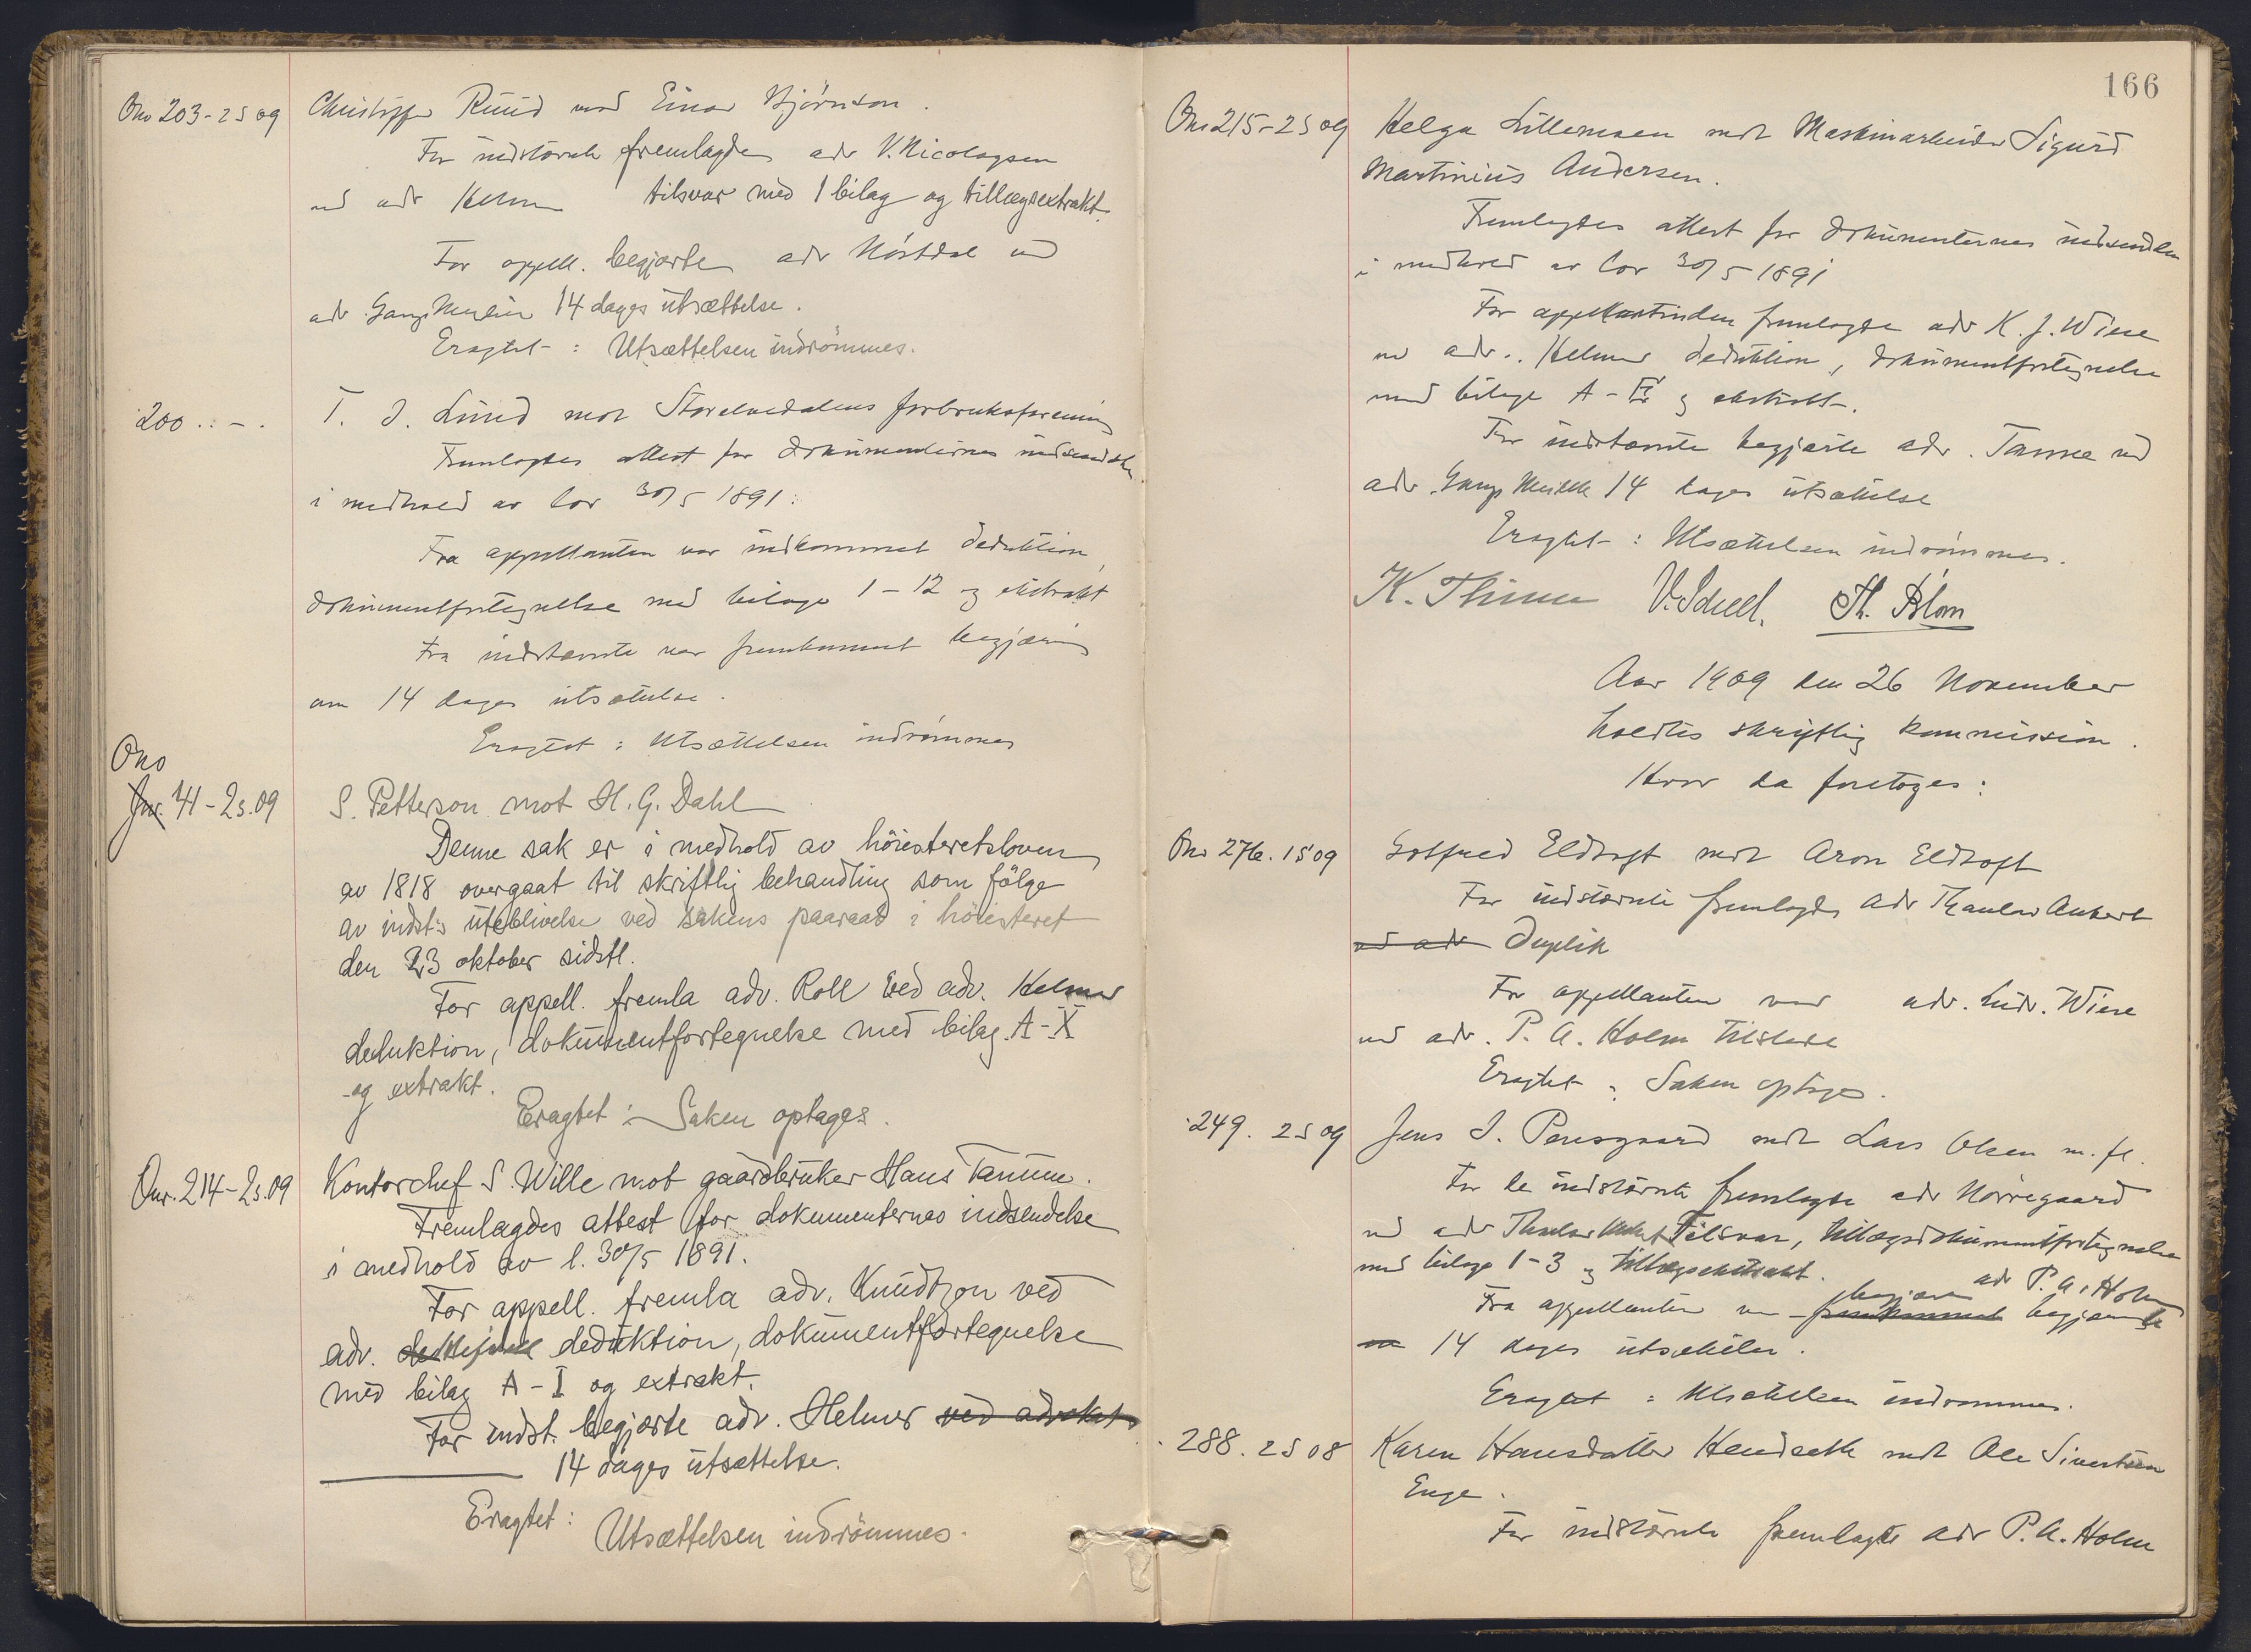 Ono 203 - 2 S 09
Christoffer Ruud mot Einar Bjørnson.
For indstevnte fremlagdes adv V. Nicolaysen
ved adv Helmer tilsvar med 1 bilag og tillægsextrakt.
For appell. begjærte adv Nórstdal ved
adv 14 dages utsættelse.
Eragtet : Utsættelsen indrömmes.
200 . . - .
T. J. Lund mot Storelvedalens forbruksforening
Fremlagdes attest for dokumenternes indsendelse
i medhold av lov 30/5 1891.
Fra appellanten var indkommet deduktion,
dokumentfortegnelse med bilage 1 - 12 og ekstrakt
Fra indstævnte var fremkommet begjæring
om 14 dages utsættelse.
Eragtet : Utsættelsen indrømmes
Ono
Jnr. 41 - 2s. 09
S. Petterson mot H. G. Dahl
Denne sak er i medhold av höiesteretsloven
av 1818 overgaat til skriftlig behandling som fölge
av indst's uteblivelse ved sakens paaraab i höiesteret
den 23 oktober sidstl.
For appell. fremla adv. Roll ved adv. Helmer
deduktion, dokumentfortegnelse med bilag A - X
og extrakt.
Eragtet : Saken optages.
Onr. 214 - 2s. 09
Kontorchef S. Wille mot gaardbruker Hans Tanum.
Fremlagdes attest for dokumenternes indsendelse
i medhold av l. 30/5 1891.
For appell. fremla adv. Knudtzon ved
adv. deduktion, dokumentfortegnelse
med bilag A - I og extrakt.
For indst. begjærte adv. Helmer ved advokat
14 dages utsættelse.
Eragtet : Utsættelsen indrömmes.
166
Ono 215 - 2 S 09
Helga Lillemoen mot Maskinarbeider Sigurd
Martinius Andersen.
Fremlagdes attest for dokumenternes indsendelse
i medhold av lov 30/5 1891
For appellantinden fremlagde adv K. J. Wiese
ved adv. Helmer deduktion, dokumentfortegnelse
med bilage A - og ekstrakt.
For indstævnte begjærte adv. Tanne ved
adv. 14 dages utsættelse
Eragtet : Utsættelsen indrømmes.
K. Thinn V. Scheel. Th. Blom
Aar 1909 den 26 November
holdtes skriftlig kommission.
Hvor da foretoges :
Ono 276. 1 S 09
Gotfred Eldtoft mot Aron Eldtoft
For indstævnte fremlagdes adv Thaulow Ankert
ved adv Duplik
For appellanten var adv. Ludv. Wiese
ved adv. P. A. Holm tilstede
Eragtet : Saken optages.
249. 2 S 09
Jens J. Pensgaard mot Lars Olsen m. fl.
For de indstævnte fremlagde adv Nørregaard
ved adv Thaulow Tilsvar, tillægsdokumentfortegnelse
med bilage 1 - 3 og tillægsekstrakt.
begjærte adv P. A. Holm
Fra appellanten var fremkommet begjæring
om 14 dages utsættelse.
Eragtet : Utsættelsen indrømmes.
288. 2 S 08
Karen Hansdatter Hendseth mot Ole Sivertsen
Enge.
For indstævnte fremlagde adv P. A. Holm